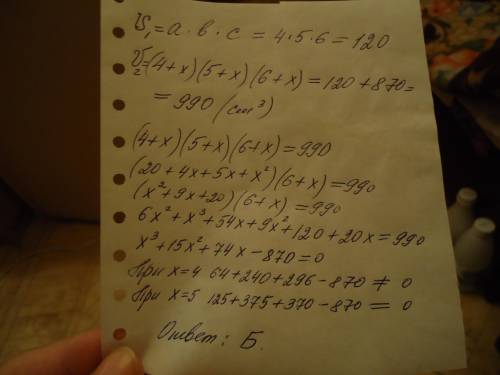 V₁ = a · b · c = 4 · 5 · 6 = 120
V₂ = (4+x)(5+x)(6+x) = 120 + 870 =
= 990 (см³)
(4+x)(5+x)(6+x) = 990
(20+4x+5x+x²)(6+x) = 990
(x²+9x+20)(6+x) = 990
6x²+x³+54x+9x²+120+20x = 990
x³+15x²+74x-870=0
При x=4 64+240+296-870 ≠ 0
При x=5 125+375+370-870 = 0
Ответ: Б.